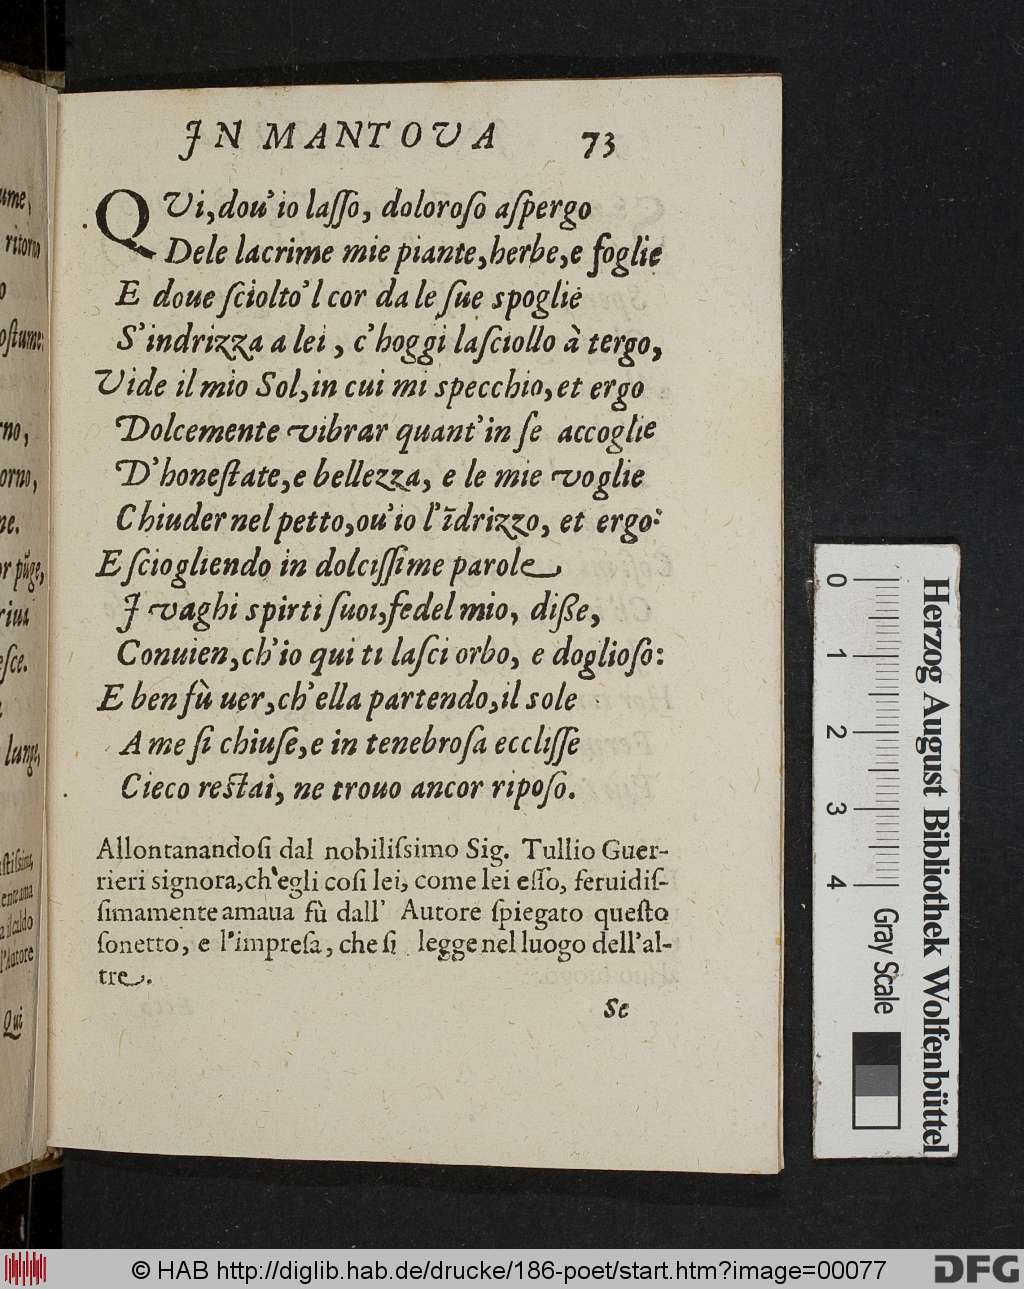 IN MANTOVA 73
QVi, dou' io lasso, doloroso aspergo
Dele lacrime mie piante, herbe, e foglie
E doue sciolto'l cor da le sue spoglie
S'indrizza a lei, c'hoggi lasciollo à tergo,
Vide il mio Sol, in cui mi specchio, et ergo
Dolcemente vibrar quant'in se accoglie
D'honestate, e bellezza, e le mie voglie
Chiuder nel petto, ou'io l'īdrizzo, et ergo:
E sciogliendo in dolcissime parole
I vaghi spirti suoi, fedel mio, disse,
Conuien, ch'io qui ti lasci orbo, e doglioso:
E ben fù uer, ch'ella partendo, il sole
A me si chiuse, e in tenebrosa ecclisse
Cieco restai, ne trouo ancor riposo.
Allontanandosi dal nobilissimo Sig. Tullio Guer-
rieri signora, ch'egli cosi lei, come lei esso, feruidis-
simamente amaua fù dall' Autore spiegato questo
sonetto, e l'impresa, che si legge nel luogo dell'al-
tre.
Se
ume,
ritorno
o
ostume:
rno,
orno,
ne.
or pūge,
riua
esce.
lunge,
stissima,
ente ama
a il caldo
l'Autore
Qui
0 1 2 3 4
Gray Scale
Herzog August Bibliothek Wolfenbüttel
© HAB http://diglib.hab.de/drucke/186-poet/start.htm?image=00077
DFG